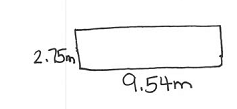 2.75m
9.54m